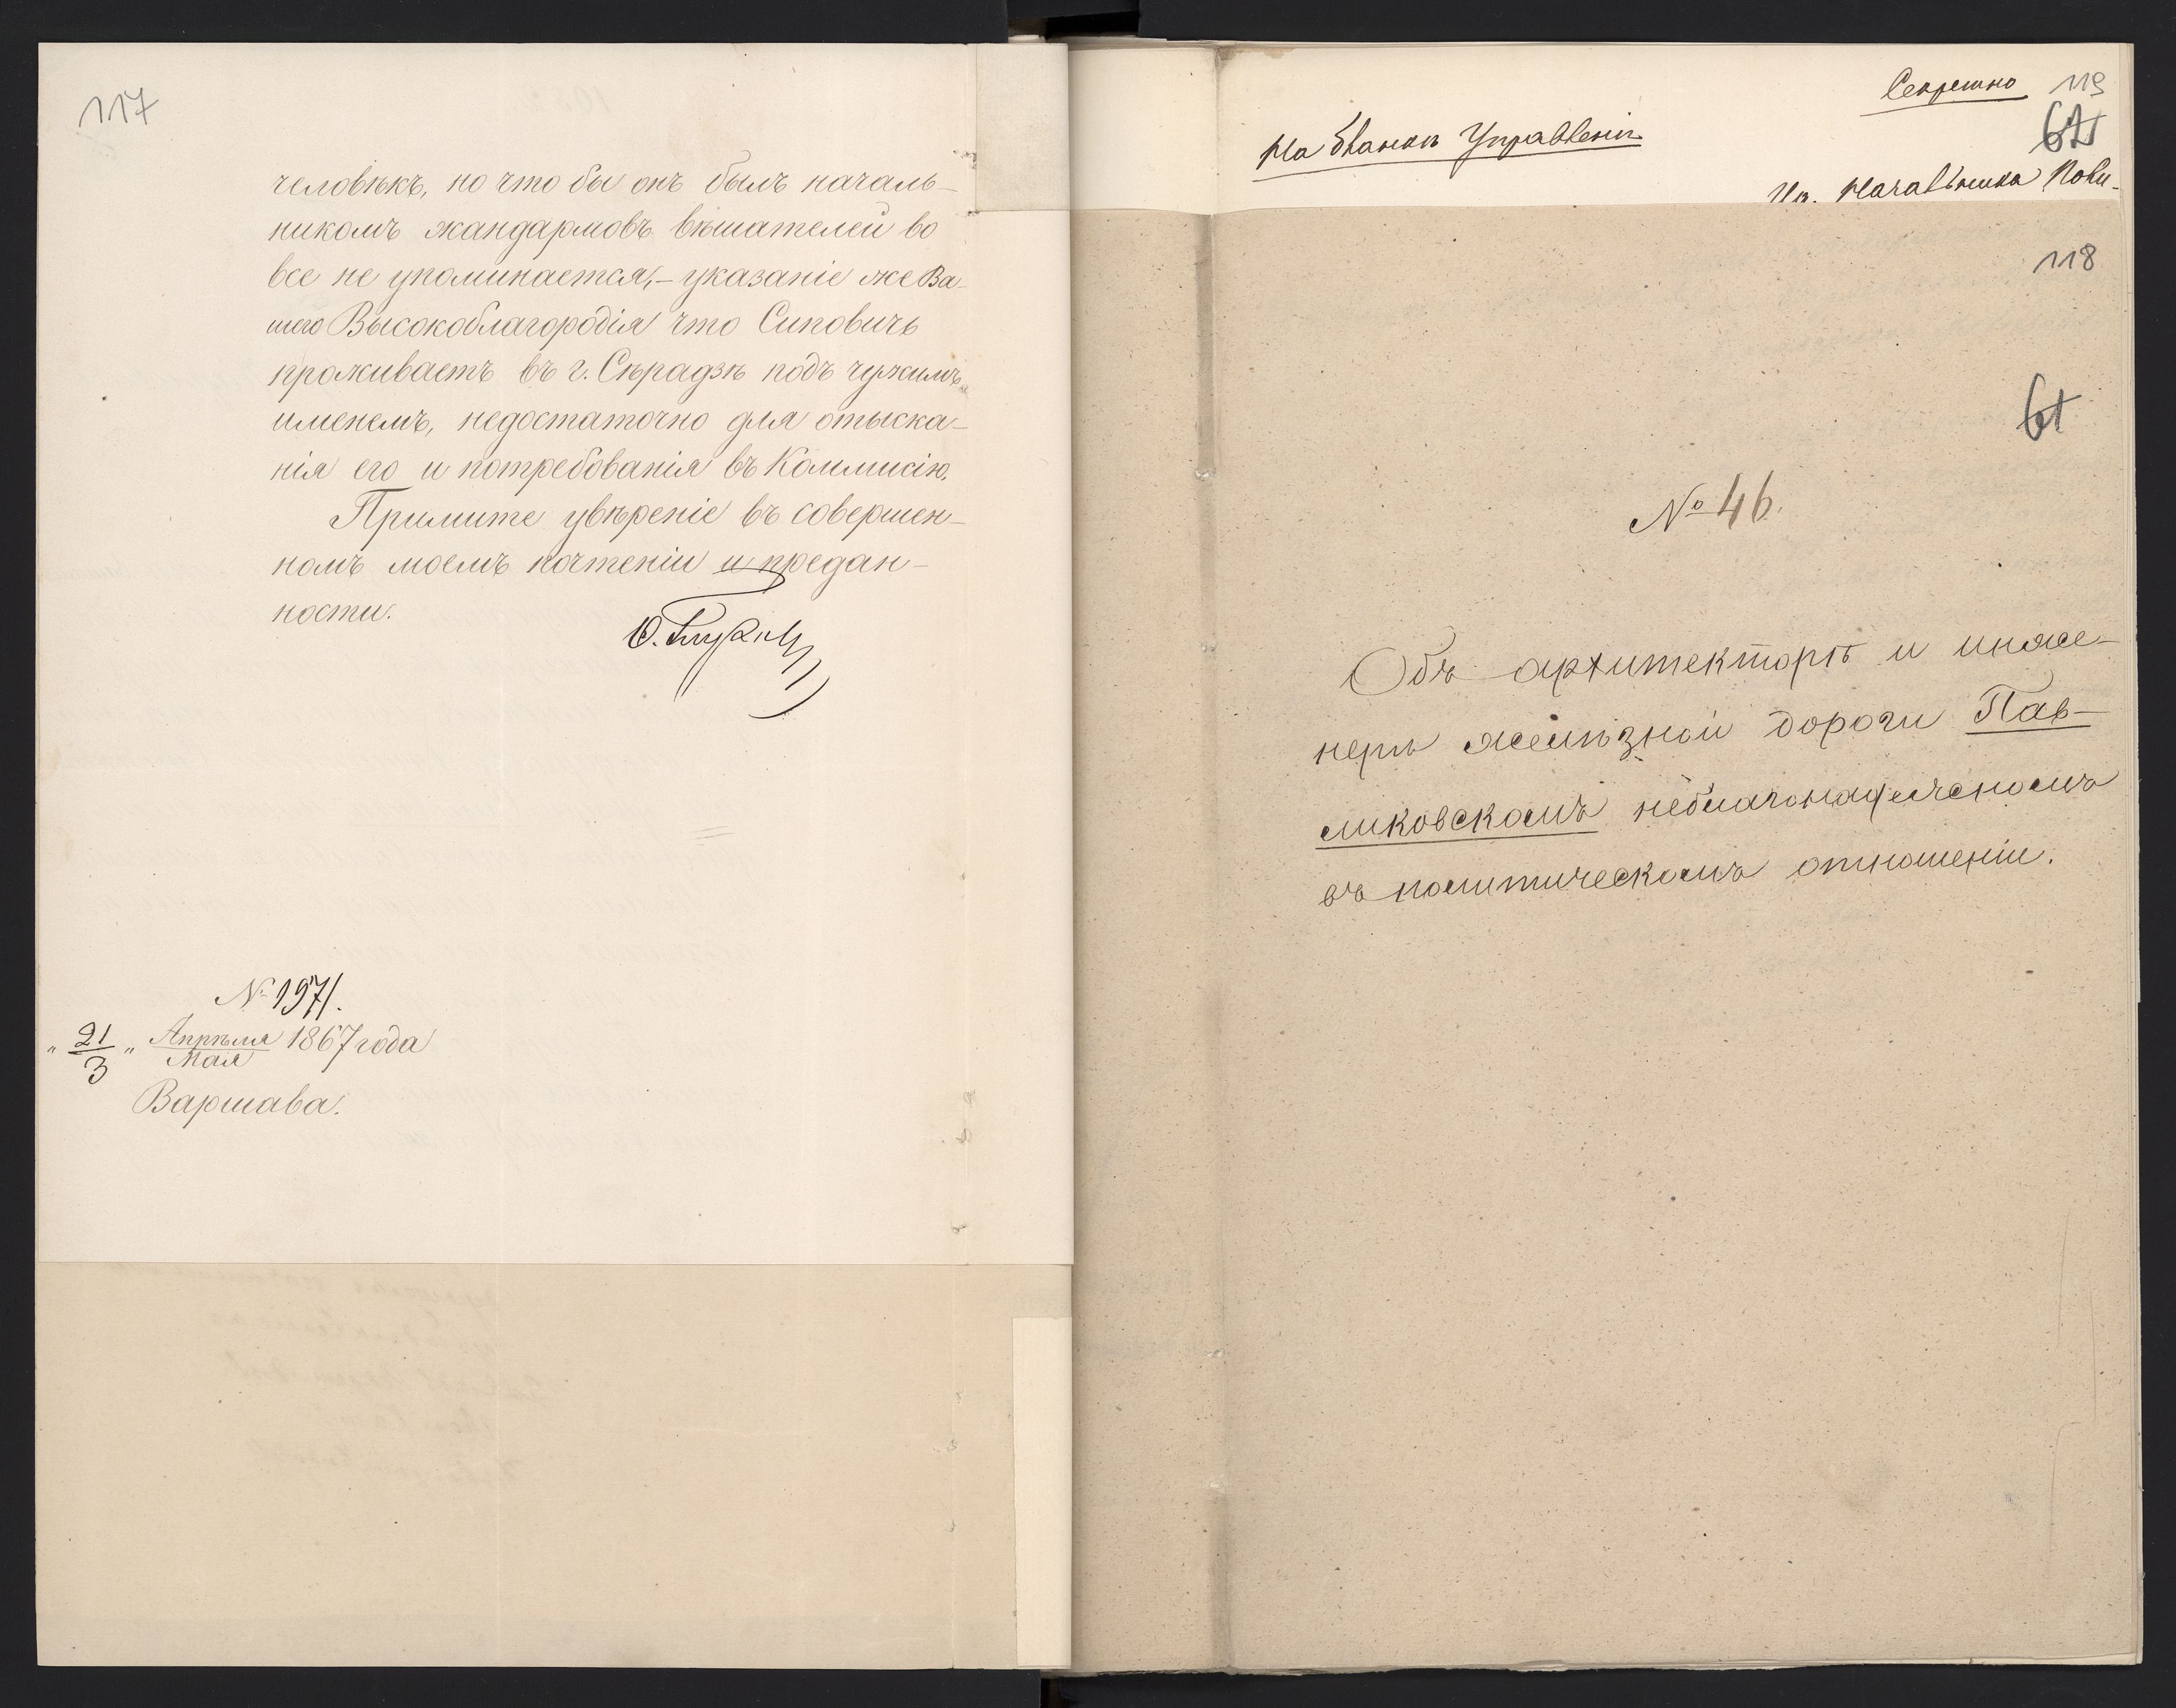 117
человѣкъ, но что бы онъ былъ началь-
никомъ жандармовъ вѣшателей во
все не упоминается,- указаніе же Ва-
шего Высокоблагородія что Сиповичъ
проживаетъ въ г. Сѣрадзѣ подъ чужимъ
именемъ, недостаточно для отыска-
нія его и потребованія въ Коммисію.
Примите увѣреніе въ совершен-
номъ моемъ почтеніи и предан-
ности.
№ 1971.
" 21/3 " Апрѣля/Мая 1867 года
Варшава.
Секретно 119
62
На бланкѣ Управленія
Началь­ника
118
61
№ 46.
Объ архитекторѣ и инже-
нерѣ желѣзной дороги Пав-
ликовскомъ неблагонадежномъ
въ политическомъ отношеніи.